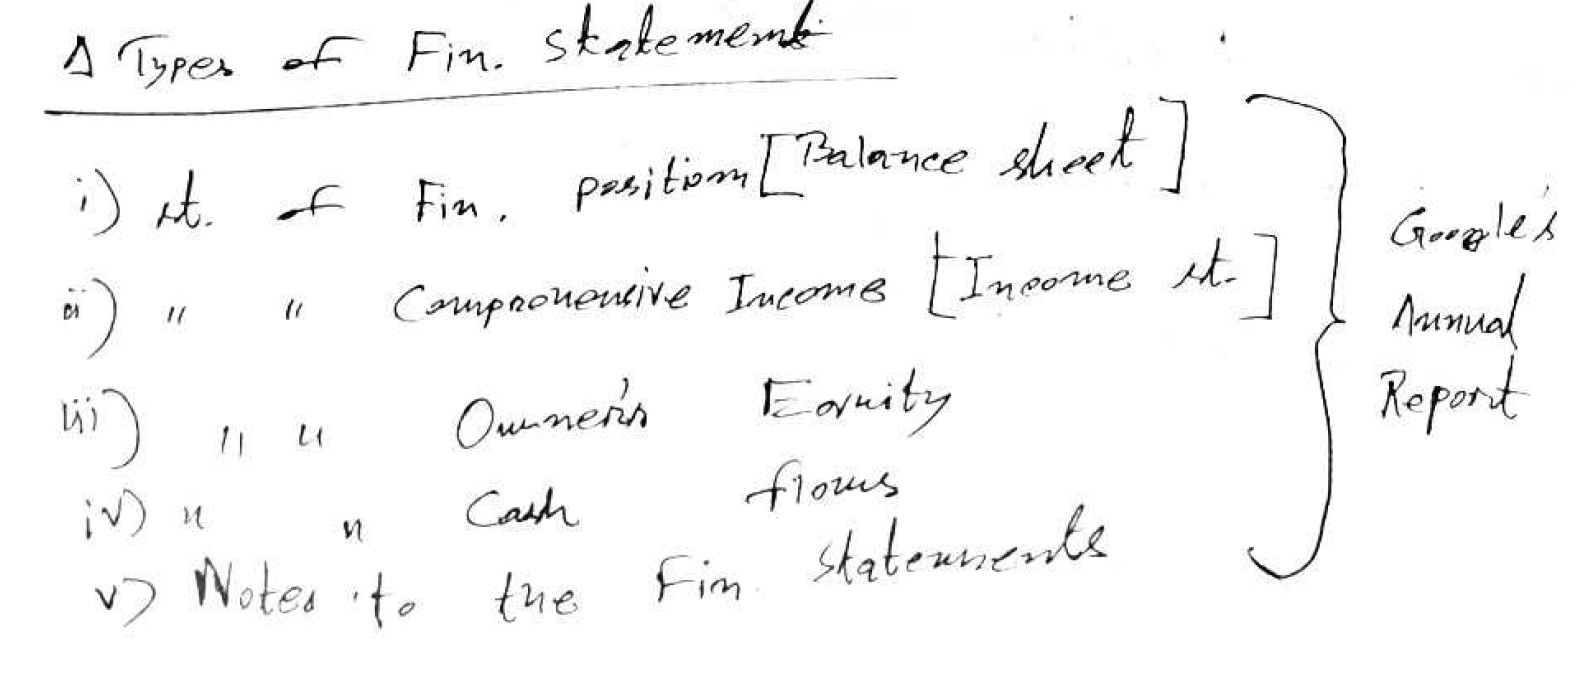 Δ Types of Fin. Statements
i) st. of Fin. position [Balance sheet]
ii) " " Comprehensive Income [Income st.]
iii) " " Owner's Equity
iv) " " Cash flows
v) Notes to the Fin. Statements
Google's
Annual
Report